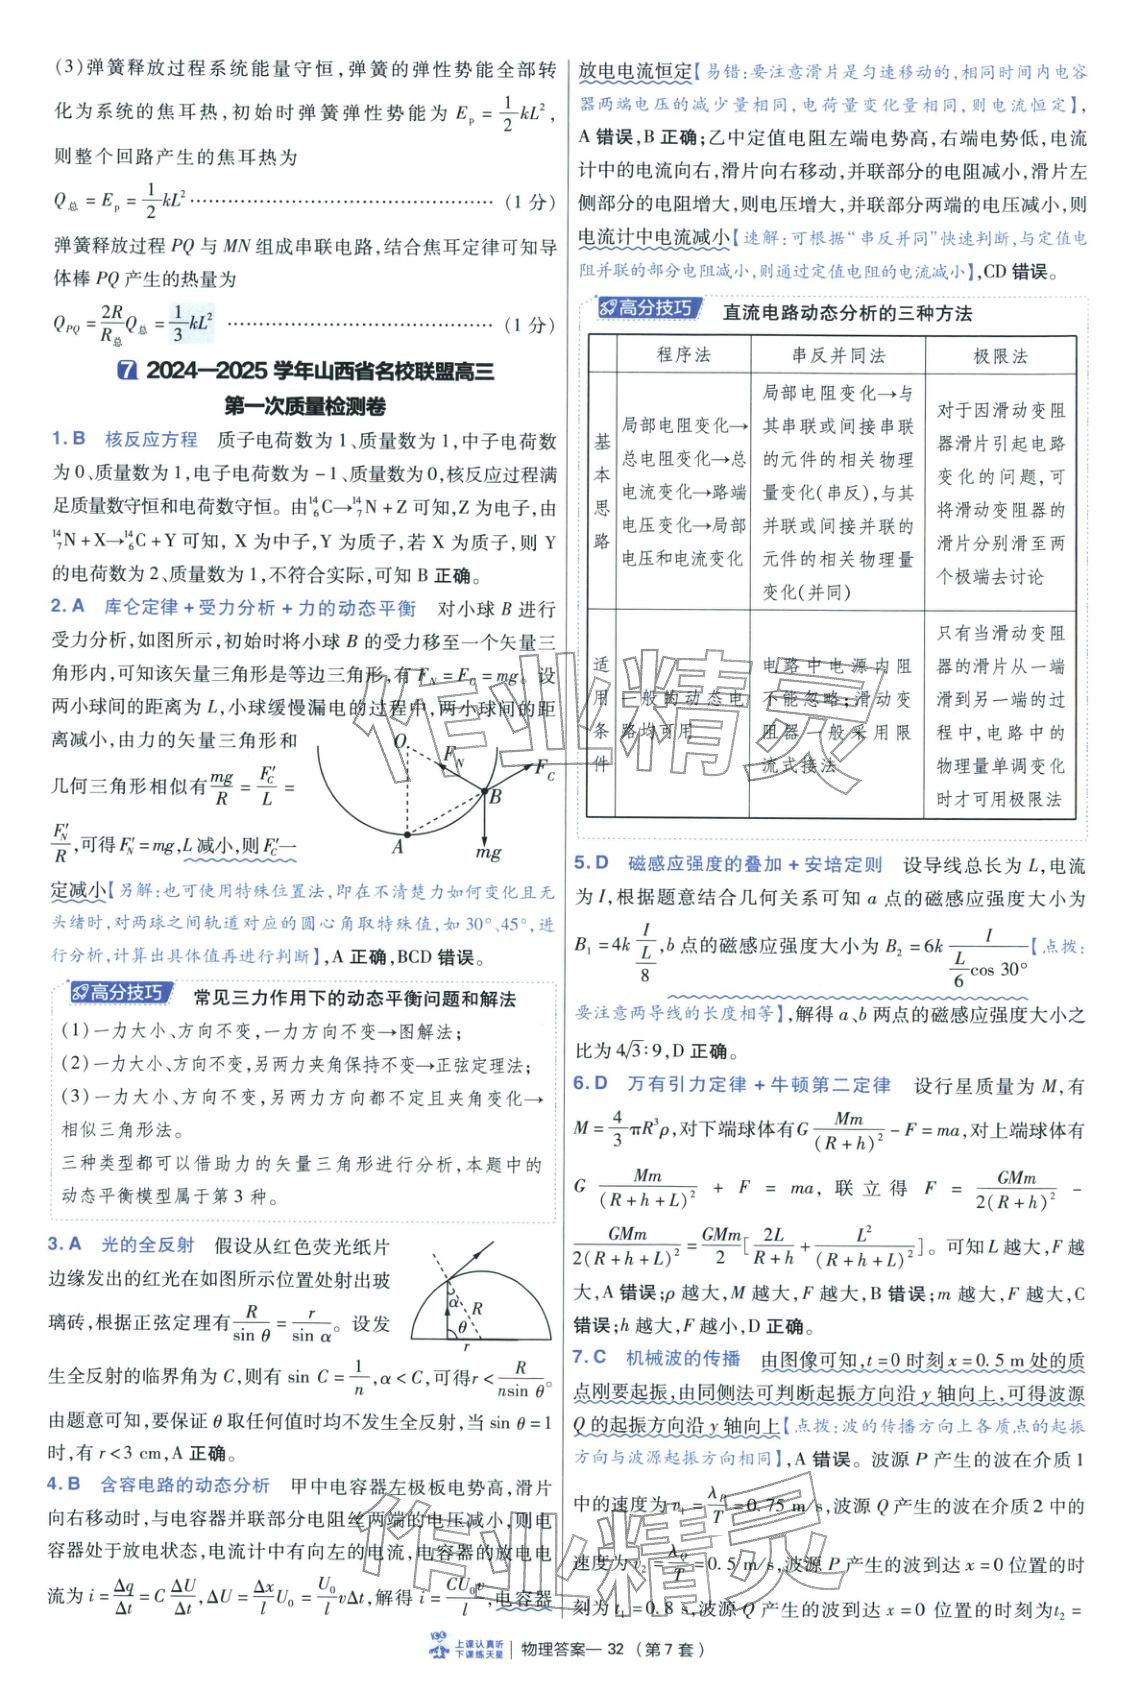 (3)弹簧释放过程系统能量守恒,弹簧的弹性势能全部转
化为系统的焦耳热,初始时弹簧弹性势能为 E_p = 1/2 kL²,
则整个回路产生的焦耳热为
Q_总 = E_p = 1/2 kL² ………………………………… (1 分)
弹簧释放过程 PQ 与 MN 组成串联电路,结合焦耳定律可知导
体棒 PQ 产生的热量为
Q_PQ = 2R/R_总 Q_总 = 1/3 kL² ………………………………… (1 分)
7 2024—2025 学年山西省名校联盟高三
第一次质量检测卷
1. B 核反应方程 质子电荷数为 1、质量数为 1,中子电荷数
为 0、质量数为 1,电子电荷数为 -1、质量数为 0,核反应过程满
足质量数守恒和电荷数守恒。由¹⁴₆C→¹⁴₇N + Z 可知,Z 为电子,由
¹⁴₇N + X→¹⁴₆C + Y 可知, X 为中子,Y 为质子,若 X 为质子,则 Y
的电荷数为 2、质量数为 1,不符合实际,可知 B 正确。
2. A 库仑定律 + 受力分析 + 力的动态平衡 对小球 B 进行
受力分析,如图所示,初始时将小球 B 的受力移至一个矢量三
角形内,可知该矢量三角形是等边三角形,有 F_N = F_C = mg。设
两小球间的距离为 L,小球缓慢漏电的过程中,两小球间的距
离减小,由力的矢量三角形和
几何三角形相似有 mg/R = F'_C/L =
F'_N/R,可得 F'_N = mg,L 减小,则 F'_C 一
O F_N F_C B A mg
定减小【另解:也可使用特殊位置法,即在不清楚力如何变化且无
头绪时,对两球之间轨道对应的圆心角取特殊值,如 30°、45°,进
行分析,计算出具体值再进行判断】,A 正确,BCD 错误。
高分技巧 常见三力作用下的动态平衡问题和解法
(1)一力大小、方向不变,一力方向不变→图解法;
(2)一力大小、方向不变,另两力夹角保持不变→正弦定理法;
(3)一力大小、方向不变,另两力方向都不定且夹角变化→
相似三角形法。
三种类型都可以借助力的矢量三角形进行分析,本题中的
动态平衡模型属于第 3 种。
3. A 光的全反射 假设从红色荧光纸片
边缘发出的红光在如图所示位置处射出玻
璃砖,根据正弦定理有 R/sin θ = r/sin α。设发
α R θ r
生全反射的临界角为 C,则有 sin C = 1/n,α < C,可得 r < R/(nsin θ)。
由题意可知,要保证 θ 取任何值时均不发生全反射,当 sin θ = 1
时,有 r < 3 cm,A 正确。
4. B 含容电路的动态分析 甲中电容器左极板电势高,滑片
向右移动时,与电容器并联部分电阻丝两端的电压减小,则电
容器处于放电状态,电流计中有向左的电流,电容器的放电电
流为 i = Δq/Δt = C ΔU/Δt,ΔU = Δx/l U₀ = U₀/l vΔt,解得 i = CU₀v/l,电容器
放电电流恒定【易错:要注意滑片是匀速移动的,相同时间内电容
器两端电压的减少量相同,电荷量变化量相同,则电流恒定】,
A 错误,B 正确;乙中定值电阻左端电势高,右端电势低,电流
计中的电流向右,滑片向右移动,并联部分的电阻减小,滑片左
侧部分的电阻增大,则电压增大,并联部分两端的电压减小,则
电流计中电流减小【速解:可根据“串反并同”快速判断,与定值电
阻并联的部分电阻减小,则通过定值电阻的电流减小】,CD 错误。
高分技巧 直流电路动态分析的三种方法
程序法 串反并同法 极限法
基本思路
局部电阻变化→
总电阻变化→总
电流变化→路端
电压变化→局部
电压和电流变化
局部电阻变化→与
其串联或间接串联
的元件的相关物理
量变化(串反),与其
并联或间接并联的
元件的相关物理量
变化(并同)
对于因滑动变阻
器滑片引起电路
变化的问题,可
将滑动变阻器的
滑片分别滑至两
个极端去讨论
适用条件
一般的动态电
路均可用
电路中电源内阻
不能忽略;滑动变
阻器一般采用限
流式接法
只有当滑动变阻
器的滑片从一端
滑到另一端的过
程中,电路中的
物理量单调变化
时才可用极限法
5. D 磁感应强度的叠加 + 安培定则 设导线总长为 L,电流
为 I,根据题意结合几何关系可知 a 点的磁感应强度大小为
B₁ = 4k I/(L/8),b 点的磁感应强度大小为 B₂ = 6k I/(L/6 cos 30°)【点拨:
要注意两导线的长度相等】,解得 a、b 两点的磁感应强度大小之
比为 4√3∶9,D 正确。
6. D 万有引力定律 + 牛顿第二定律 设行星质量为 M,有
M = 4/3 πR³ρ,对下端球体有 G Mm/(R + h)² - F = ma,对上端球体有
G Mm/(R + h + L)² + F = ma, 联立得 F = GMm/2(R + h)² -
GMm/2(R + h + L)² = GMm/2 [2L/(R + h) + L²/(R + h + L)²]。可知 L 越大,F 越
大,A 错误;ρ 越大,M 越大,F 越大,B 错误;m 越大,F 越大,C
错误;h 越大,F 越小,D 正确。
7. C 机械波的传播 由图像可知,t = 0 时刻 x = 0.5 m 处的质
点刚要起振,由同侧法可判断起振方向沿 y 轴向上,可得波源
Q 的起振方向沿 y 轴向上【点拨:波的传播方向上各质点的起振
方向与波源起振方向相同】,A 错误。波源 P 产生的波在介质 1
中的速度为 v₁ = λ_P/T = 0.75 m/s,波源 Q 产生的波在介质 2 中的
速度为 v₂ = λ_Q/T = 0.5 m/s,波源 P 产生的波到达 x = 0 位置的时
刻为 t₁ = 0.8 s,波源 Q 产生的波到达 x = 0 位置的时刻为 t₂ =
作业精灵
作业精灵
上课认真听
下课练天星
物理答案— 32 (第 7 套)